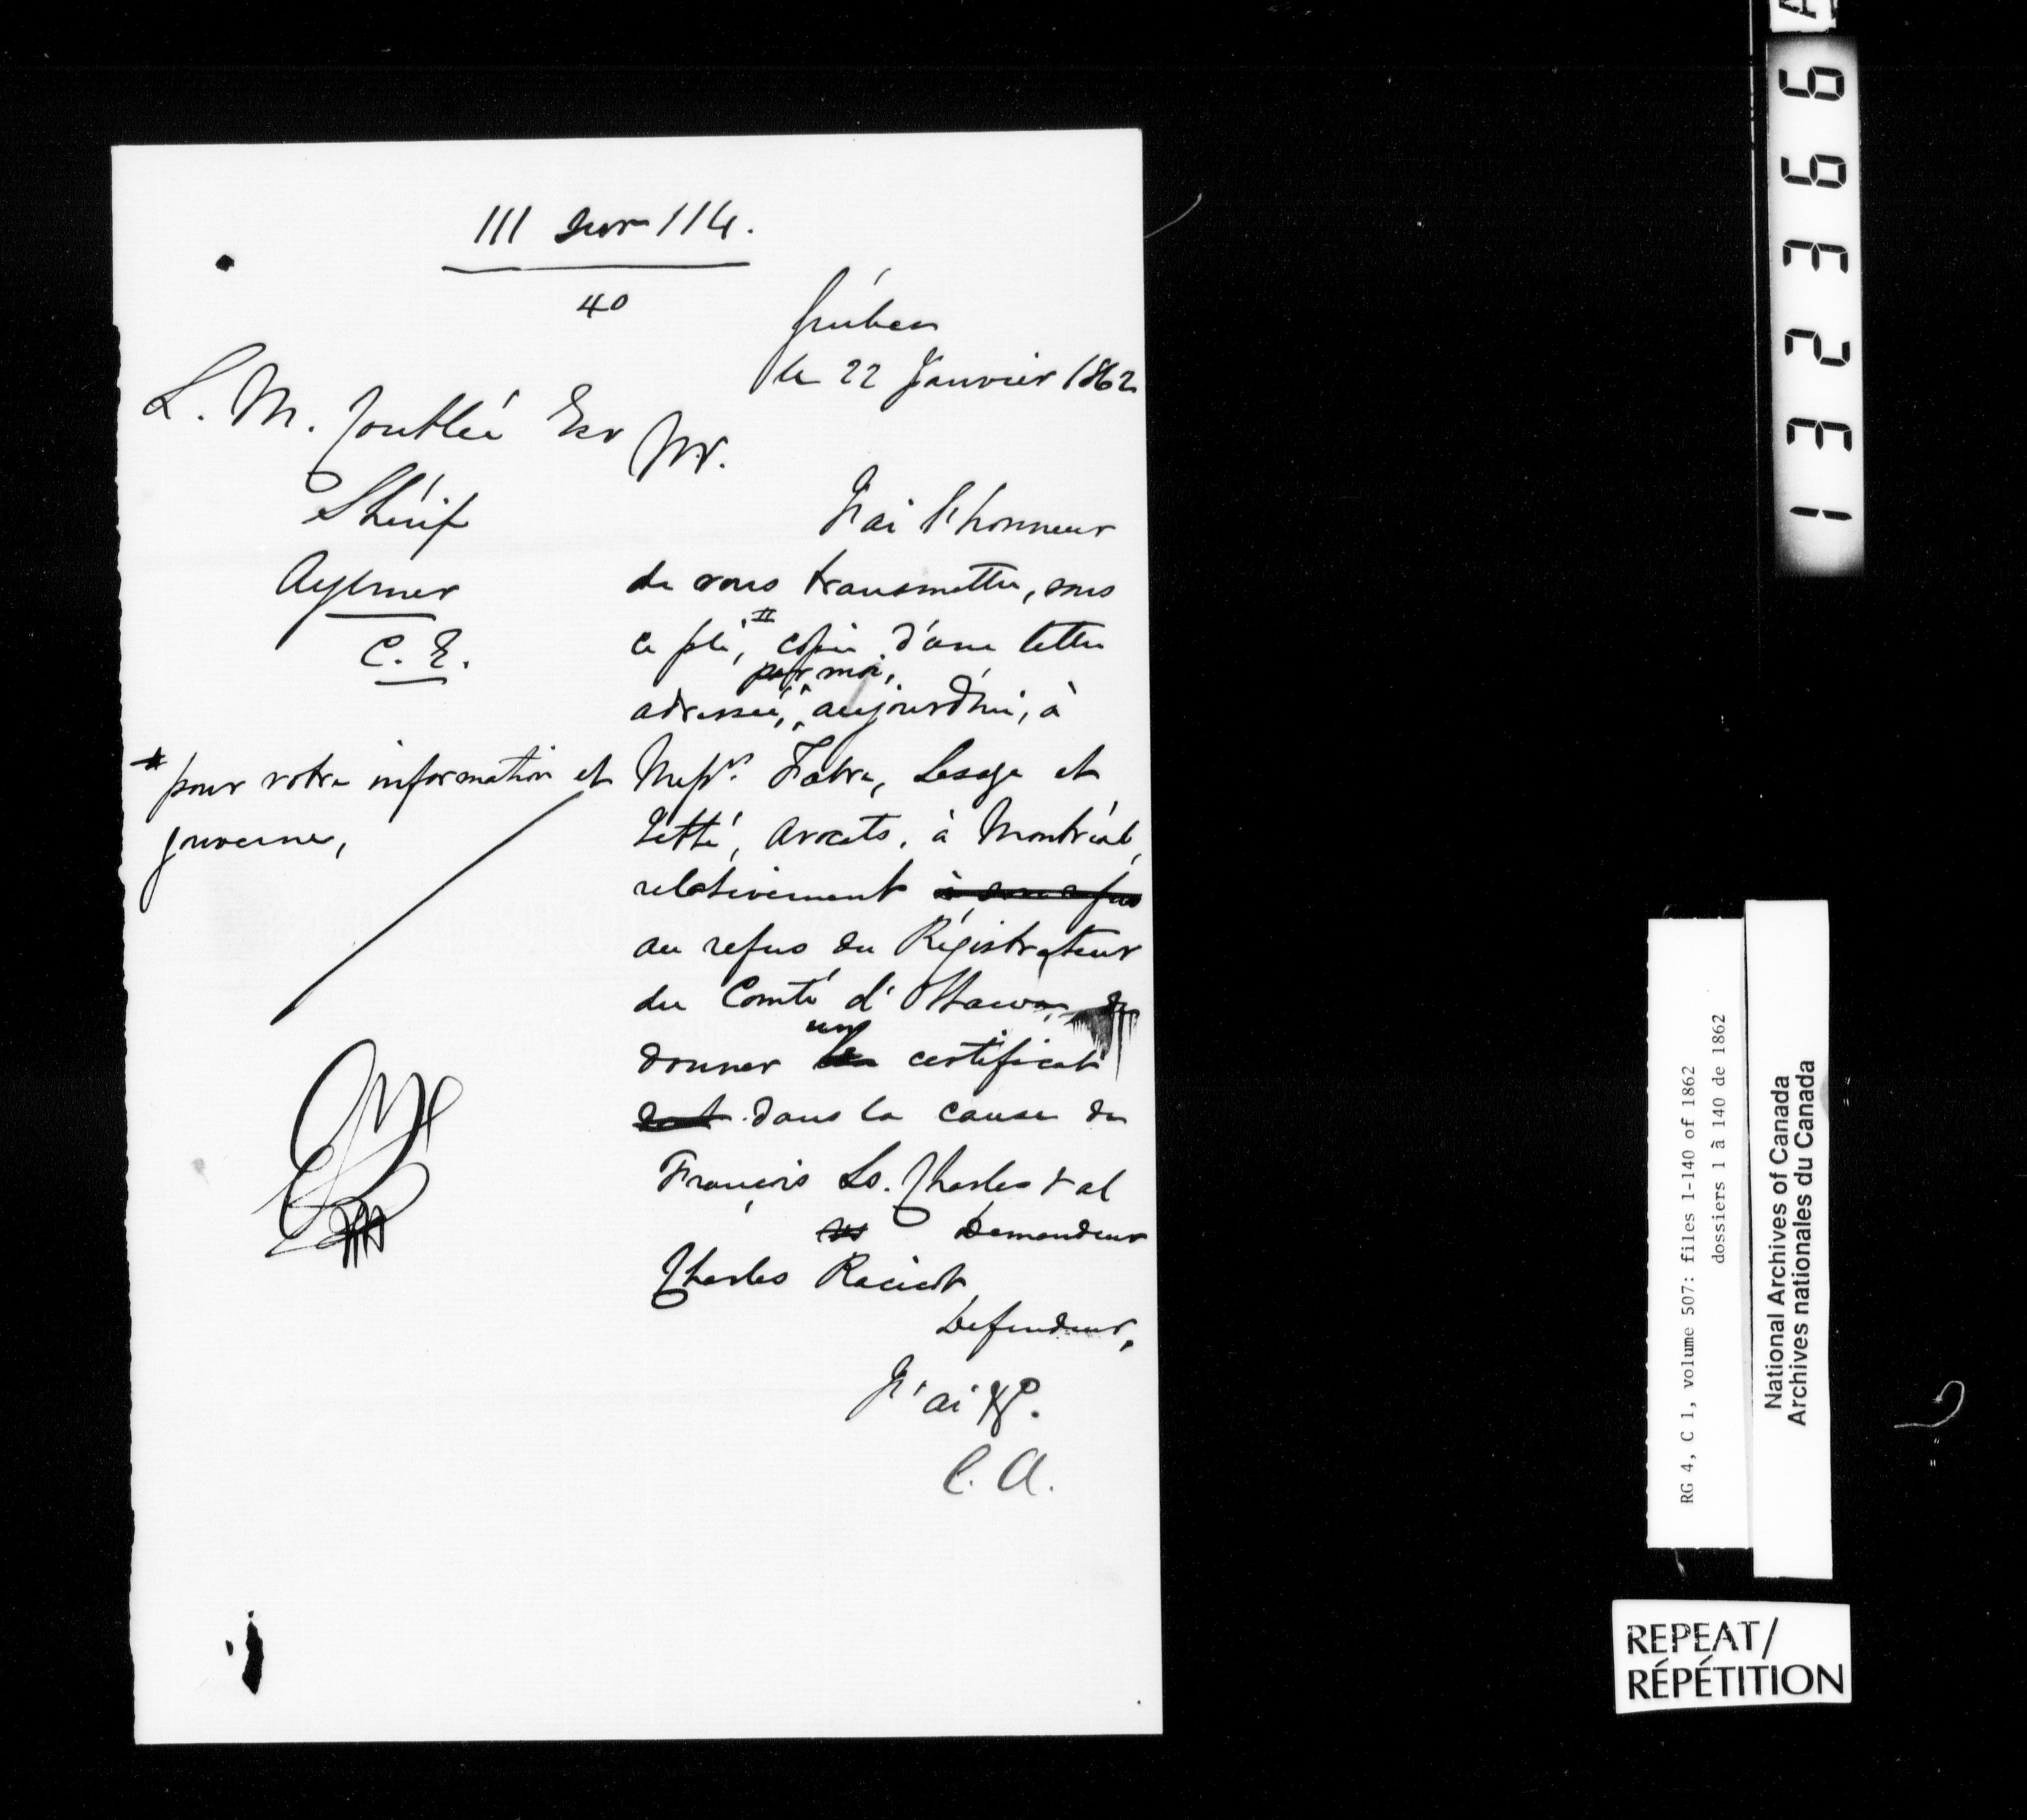 111 sur 114.
40
Québec
le 22 Janvier 1862
L. M. Coutlée Ecr
Shérif
Aylmer
C. E.
Mr.
J'ai l'honneur
de vous transmettre, sous
ce pli, copie d'une lettre
par moi,
adressée, aujourd'hui, à
Messrs. Fabre, Lesage et
Jetté, Avocats, à Montréal,
relativement à son refus
au refus du Régistrateur
du Comté d'Ottawa, de
un
donner le certificat
dans la cause de
François Ls. Charles & al
vs Demandeur
Charles Racicot
Défendeur,
J'ai &c.
C. A.
* pour votre information et
gouverne,
132366
RG 4, C 1, volume 507: files 1-140 of 1862
dossiers 1 à 140 de 1862
National Archives of Canada
Archives nationales du Canada
REPEAT/
RÉPÉTITION